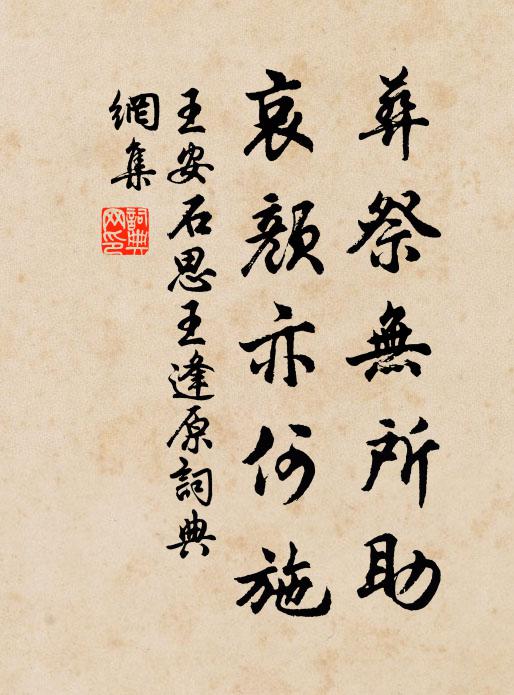 葬祭無所助
哀顏亦何施
王安石思王逢原詞典
網集
詞典網印